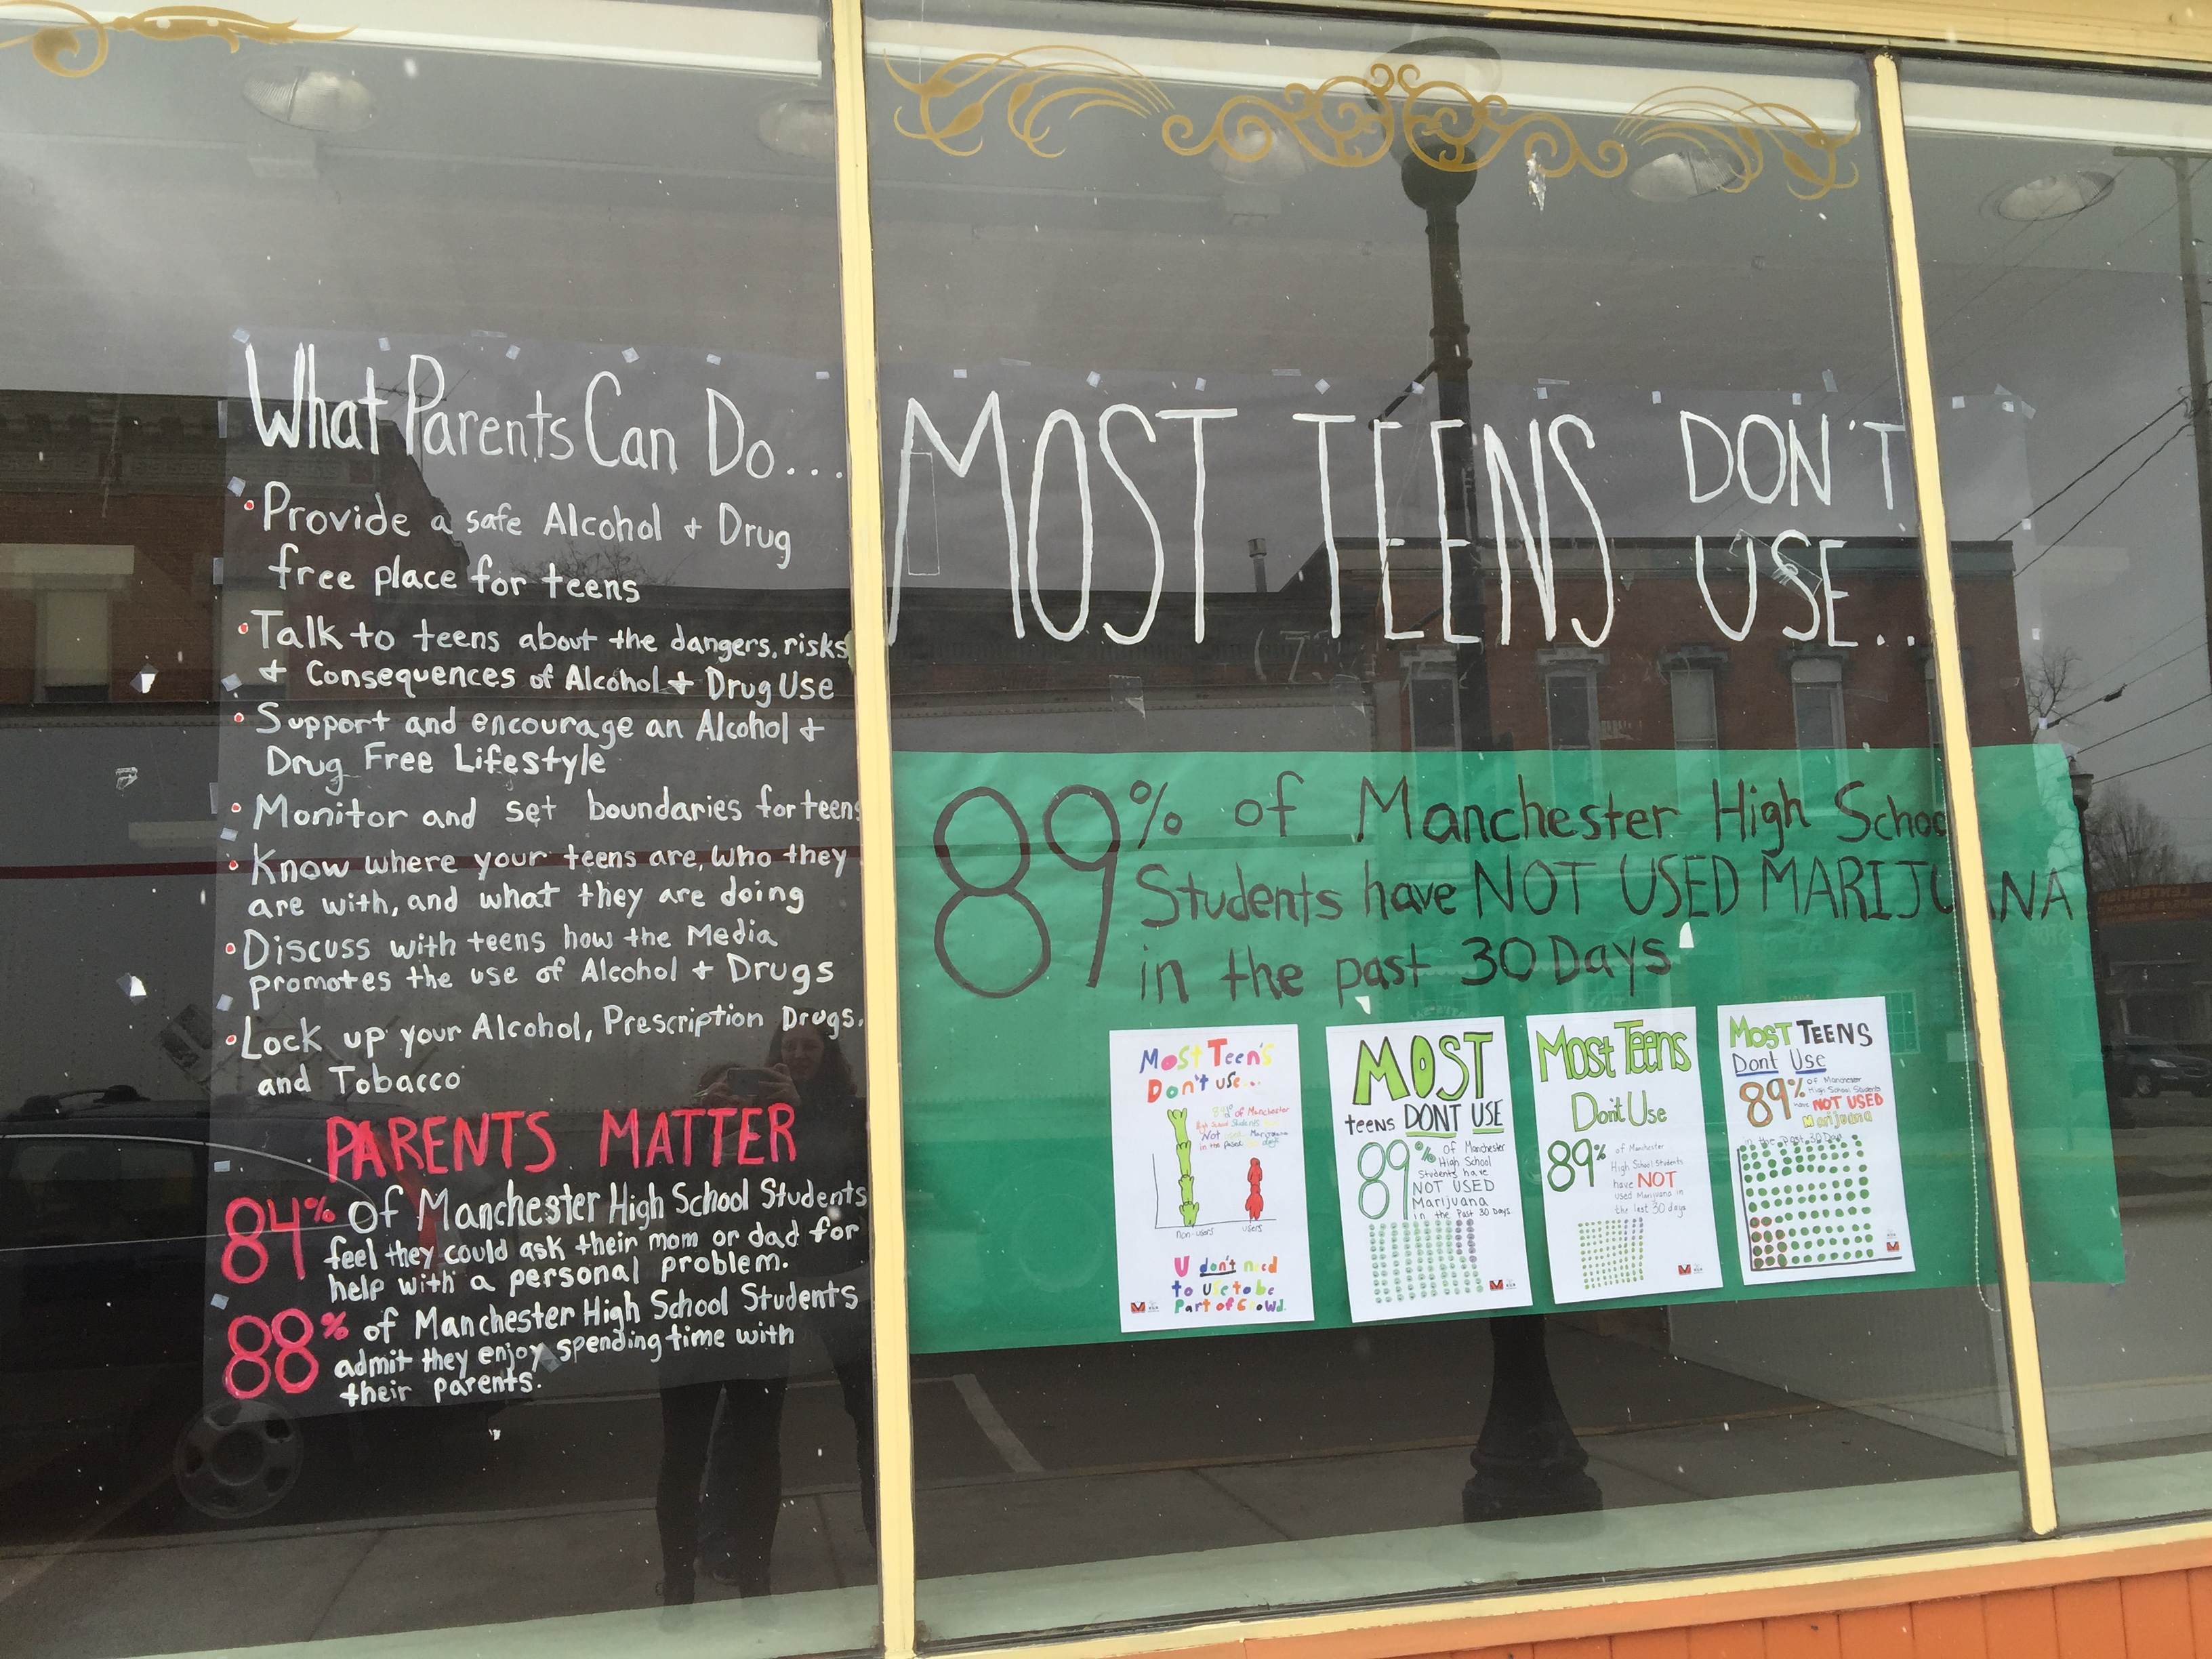 What Parents Can Do...
• Provide a safe Alcohol + Drug
free place for teens
• Talk to teens about the dangers, risks
+ Consequences of Alcohol + Drug Use
• Support and encourage an Alcohol +
Drug Free Lifestyle
• Monitor and set boundaries for teens
• Know where your teens are, who they
are with, and what they are doing
• Discuss with teens how the Media
promotes the use of Alcohol + Drugs
• Lock up your Alcohol, Prescription Drugs,
and Tobacco
PARENTS MATTER
84% of Manchester High School Students
feel they could ask their mom or dad for
help with a personal problem.
88% of Manchester High School Students
admit they enjoy spending time with
their parents.
MOST TEENS DON'T
USE...
89% of Manchester High School
Students have NOT USED MARIJUANA
in the past 30 Days
Most Teen's
Don't use...
of Manchester
High School Students
Not Marijuana
in the days
non-users users
U don't need
to use to be
Part of Crowd.
MOST
teens DONT USE
89% of Manchester
High School
Students have
NOT USED
Marijuana
in the Past 30 Days
Most Teens
Don't Use
89% of Manchester
High School Students
have NOT
used Marijuana in
the last 30 days
MOST TEENS
Dont Use
89% of Manchester
High School Students
have NOT USED
Marijuana
in the Past 30 Days